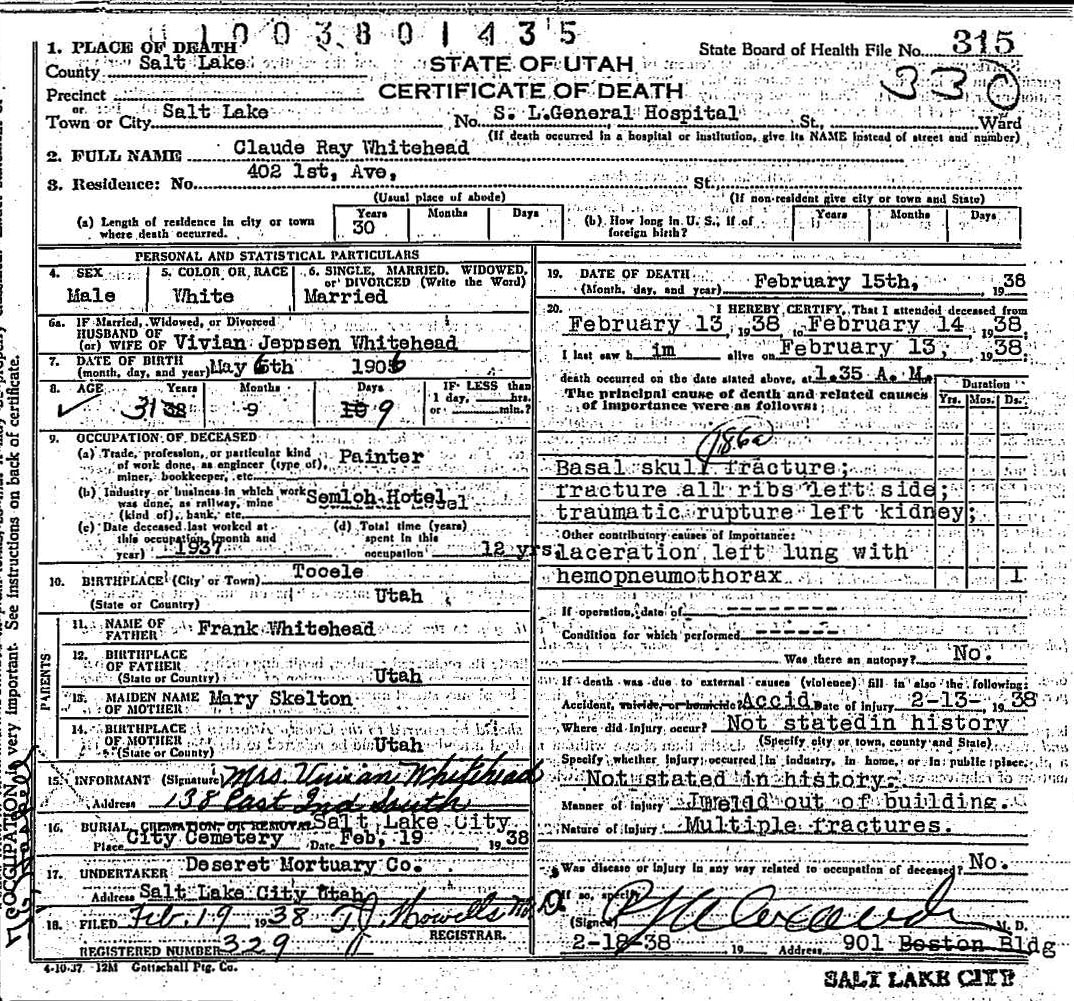 1003801435
1. PLACE OF DEATH
State Board of Health File No. 315
County Salt Lake
STATE OF UTAH
330
Precinct
CERTIFICATE OF DEATH
or
Town or City Salt Lake No. S. L. General Hospital St., Ward
(If death occurred in a hospital or institution, give its NAME instead of street and number)
2. FULL NAME Claude Ray Whitehead
3. Residence: No. 402 1st, Ave, St.,
(Usual place of abode) (If non-resident give city or town and State)
(a) Length of residence in city or town where death occurred. Years 30 Months Days
(b) How long in U. S., if of foreign birth? Years Months Days
PERSONAL AND STATISTICAL PARTICULARS
4. SEX Male
5. COLOR OR RACE White
6. SINGLE, MARRIED, WIDOWED, or DIVORCED (Write the Word) Married
6a. IF Married, Widowed, or Divorced
HUSBAND OF
(or) WIFE OF Vivian Jeppsen Whitehead
7. DATE OF BIRTH
(month, day, and year) May 6th 1906
8. AGE Years 31 38 Months 9 Days 10 9 IF LESS than 1 day, hrs. or min.?
9. OCCUPATION OF DECEASED
(a) Trade, profession, or particular kind
of work done, as engineer (type of),
miner, bookkeeper, etc. Painter
(b) Industry or business in which work
was done, as railway, mine
(kind of), bank, etc. Semloh Hotel
(c) Date deceased last worked at
this occupation (month and
year) 1937
(d) Total time (years)
spent in this
occupation 12 yrs.
10. BIRTHPLACE (City or Town) Tooele
(State or Country) Utah
PARENTS
11. NAME OF FATHER Frank Whitehead
12. BIRTHPLACE OF FATHER
(State or Country) Utah
13. MAIDEN NAME OF MOTHER Mary Skelton
14. BIRTHPLACE OF MOTHER
(State or County) Utah
15. INFORMANT (Signature) Mrs. Vivian Whitehead
Address 138 East 2nd South
16. BURIAL, CREMATION, OR REMOVAL Salt Lake City
Place City Cemetery Date Feb, 19 1938
17. UNDERTAKER Deseret Mortuary Co.
Address Salt Lake City Utah
18. FILED Feb. 19 1938 T. J. Howells M. D.
REGISTRAR.
REGISTERED NUMBER 329
4-10-37 12M Gottschall Ptg. Co.
19. DATE OF DEATH
(Month, day, and year) February 15th, 1938
20. I HEREBY CERTIFY, That I attended deceased from
February 13, 1938 to February 14, 1938.
I last saw him alive on February 13, 1938,
death occurred on the date stated above, at 1.35 A. M.
The principal cause of death and related causes
of importance were as follows:
Duration
Yrs. Mos. Ds.
186a
Basal skull fracture;
fracture all ribs left side;
traumatic rupture left kidney;
Other contributory causes of importance:
laceration left lung with
hemopneumothorax 1
If operation, date of -------
Condition for which performed ------
Was there an autopsy? No.
If death was due to external causes (violence) fill in also the following:
Accident, suicide, or homicide? Accid. Date of injury 2-13-, 1938
Where did injury occur? Not stated in history
(Specify city or town, county and State)
Specify whether injury occurred in industry, in home, or in public place.
Not stated in history.
Manner of injury out of building.
Nature of injury Multiple fractures.
Was disease or injury in any way related to occupation of deceased? No.
If so, specify
(Signed) M. D.
2-18-38 19 Address 901 Boston Bldg
SALT LAKE CITY
OCCUPATION is very important. See instructions on back of certificate.